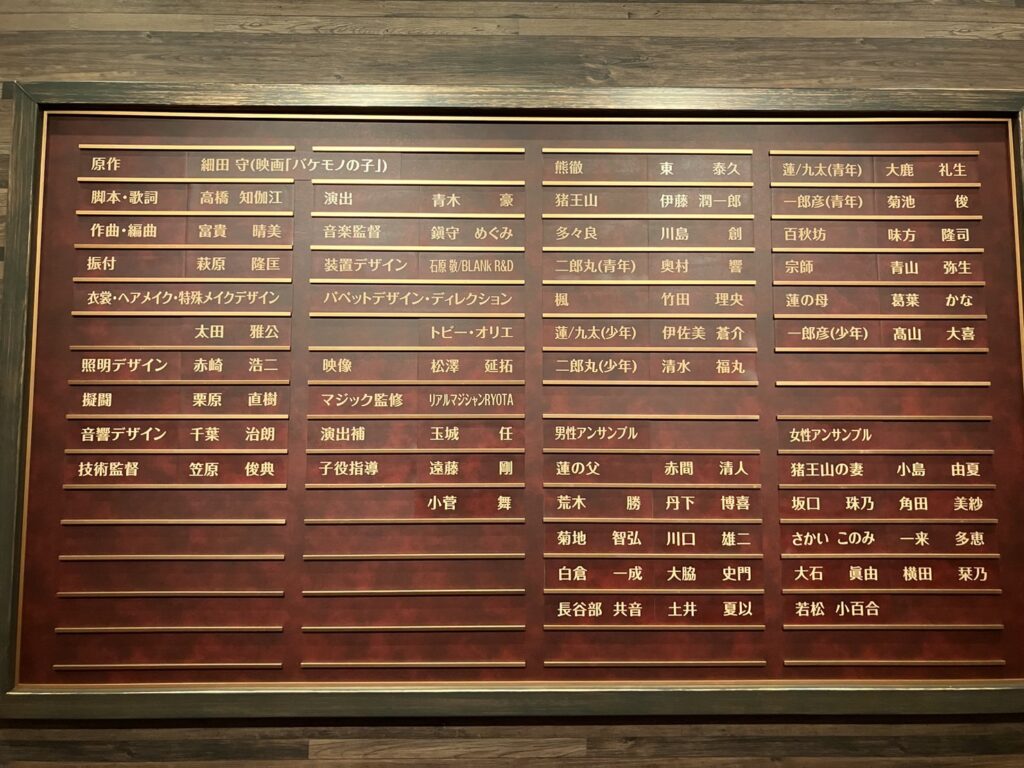 原作 細田 守(映画「バケモノの子」)
脚本・歌詞 高橋 知伽江
作曲・編曲 富貴 晴美
振付 萩原 隆匡
衣裳・ヘアメイク・特殊メイクデザイン
太田 雅公
照明デザイン 赤崎 浩二
擬闘 栗原 直樹
音響デザイン 千葉 治朗
技術監督 笠原 俊典
演出 青木 豪
音楽監督 鎭守 めぐみ
装置デザイン 石原 敬/BLANk R&D
パペットデザイン・ディレクション
トビー・オリエ
映像 松澤 延拓
マジック監修 リアルマジシャンRYOTA
演出補 玉城 任
子役指導 遠藤 剛
小菅 舞
熊徹 東 泰久
猪王山 伊藤 潤一郎
多々良 川島 創
二郎丸(青年) 奥村 響
楓 竹田 理央
蓮/九太(少年) 伊佐美 蒼介
二郎丸(少年) 清水 福丸
男性アンサンブル
蓮の父 赤間 清人
荒木 勝 丹下 博喜
菊地 智弘 川口 雄二
白倉 一成 大脇 史門
長谷部 共音 土井 夏以
蓮/九太(青年) 大鹿 礼生
一郎彦(青年) 菊池 俊
百秋坊 味方 隆司
宗師 青山 弥生
蓮の母 葛葉 かな
一郎彦(少年) 髙山 大喜
女性アンサンブル
猪王山の妻 小島 由夏
坂口 珠乃 角田 美紗
さかい このみ 一来 多恵
大石 眞由 横田 栞乃
若松 小百合